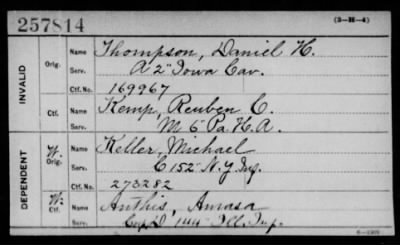 257814 (3-H-4)
INVALID Orig. Name Thompson, Daniel H.
Serv. A 2" Iowa Cav.
Ctf. No. 169967
Ctf. Name Kemp, Reuben C.
Serv. M 5 Pa. H. A.
DEPENDENT W. Orig. Name Keller, Michael
Serv. C 152" N.Y. Inf.
Ctf. No. 273282
W. Ctf. Name Anthis, Amasa
Serv. Cop D 144 Ill. Inf.